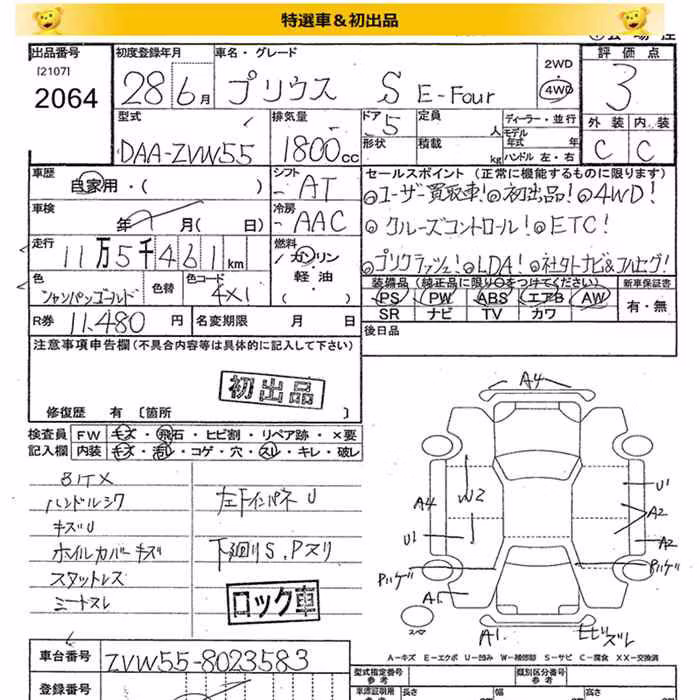 特選車＆初出品
出品番号 初度登録年月 車名・グレード 2WD 評価点
[2107]
2064 28年6月 プリウス S E-Four 4WD 3
型式 排気量 ドア 定員 人 ディーラー・並行 外装 内装
DAA-ZVW55 1800cc 5 形状 積載 kg モデル年式 年 ハンドル 左・右 C C
車歴 自家用・( ) シフト AT セールスポイント (正常に機能するものに限ります)
◎ユーザー買取車!◎初出品!◎4WD!
車検 年 月( 日) 冷房 AAC
◎クルーズコントロール!◎ETC!
走行 11万5千461km 燃料 ガソリン 軽油
◎プリクラッシュ!◎LDA!◎社外ナビ&フルセグ!
色 シャンパンゴールド 色替 色コード 4X1
装備品 (純正品に限り○をつけてください) 新車保証書
PS PW ABS エアB AW 有・無
SR ナビ TV カワ
R券 11,480円 名変期限 月 日
後日品
注意事項申告欄(不具合内容等は具体的に記入して下さい)
初出品
修復歴 有 [箇所 ]
検査員 FW キズ・飛石・ヒビ割・リペア跡・×要
記入欄 内装 キズ・汚れ・コゲ・穴・スレ・キレ・破レ
ハンドルシワ 左下インパネU
キズU
ホイルカバーキズ 下廻りS.Pスリ
スタットレス
シートスレ
ロック車
A4
W2
A4
U1
U1
A2
A2
Pハゲ
Pハゲ
A1
A1
A-キズ E-エクボ U-凹み W-補修跡 S-サビ C-腐食 XX-交換済
車台番号 ZVW55-8023583
登録番号
型式指定番号 参考 類別区分番号 参考
車庫証明用 参考 長さ 幅 高さ